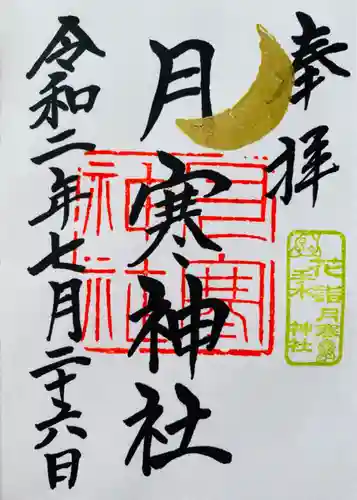 奉拝
月寒神社
令和二年七月二十六日
月寒神社
月寒神社